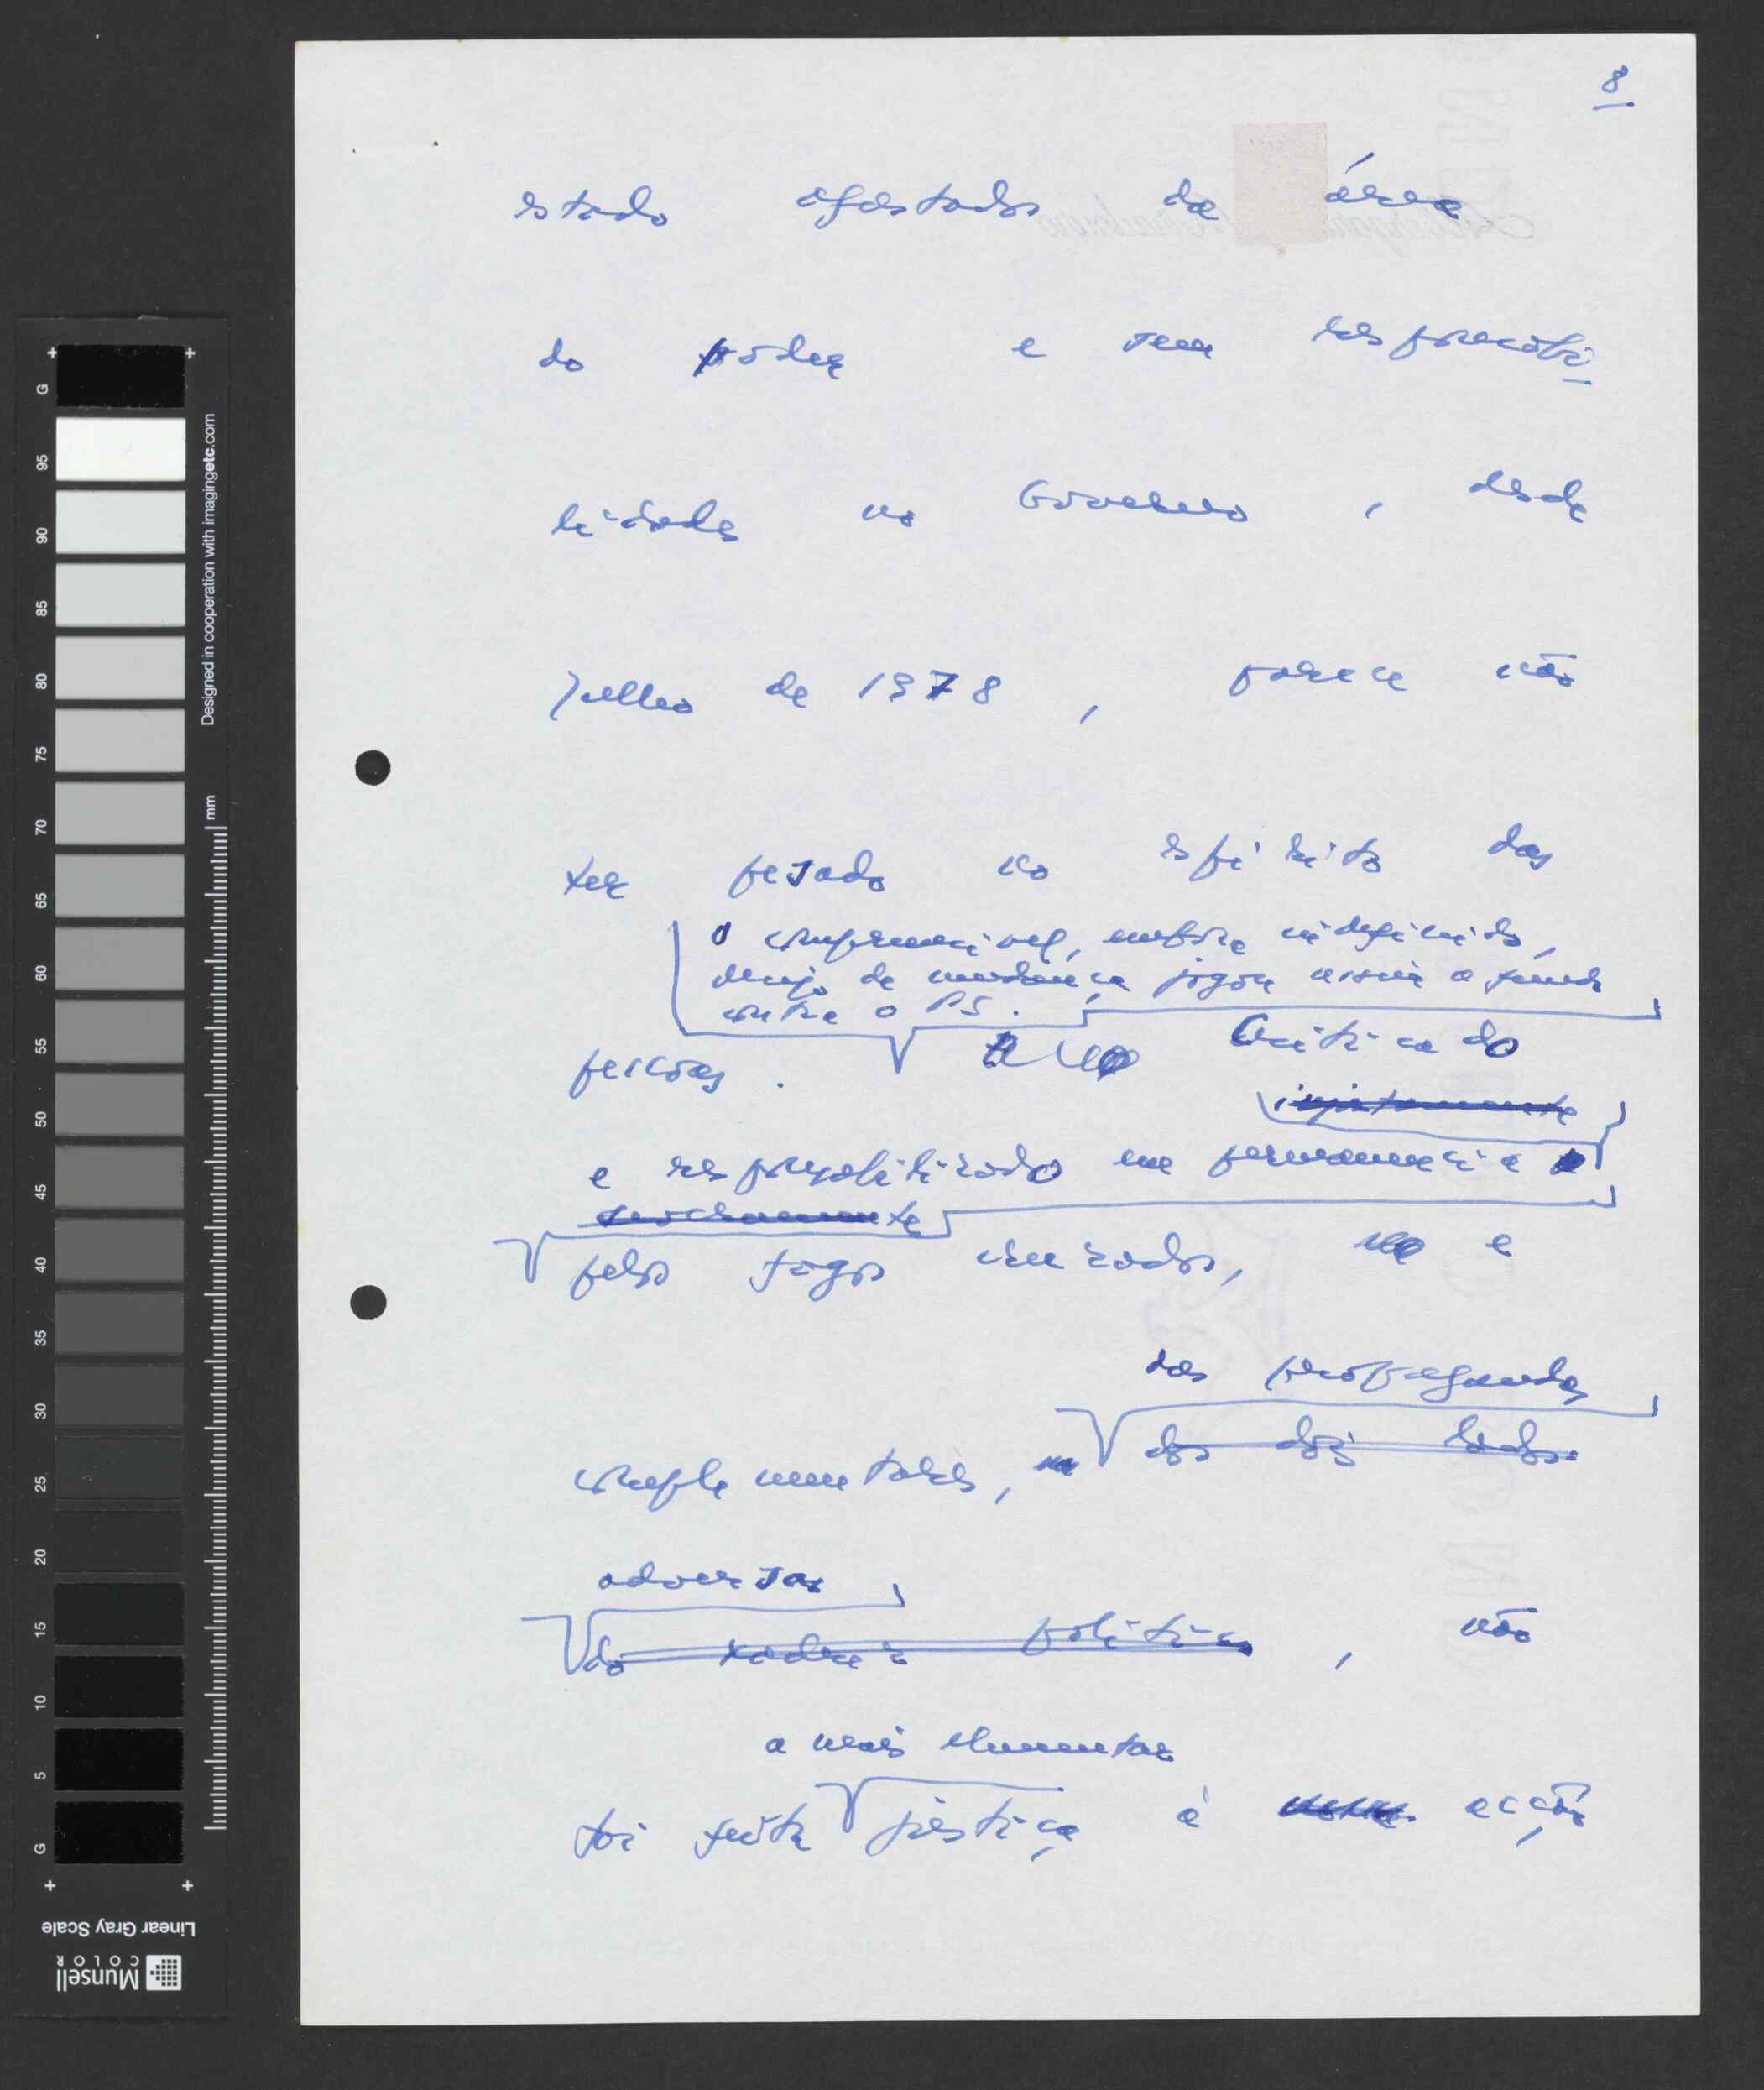 8
estado afastados da área
do poder e sem responsabi
lidades no Governo, desde
Julho de 1978, parece não
ter pesado no espírito das
O compreensível, embora indefinido,
desejo de mudança jogou assim a fundo
contra o PS.
pessoas. Criticado
injustamente
e responsabilizado em permanência
pelos fogos cruzados, e
das propagandas
complementares, dos dois lados
adversas
do xadrez político, não
a mais elementar
foi feita justiça à acção
Designed in cooperation with imagingetc.com
mm
G 95 90 85 80 75 70 65 60 55 50 45 40 35 30 25 20 15 10 5 G
Linear Gray Scale
Munsell
COLOR